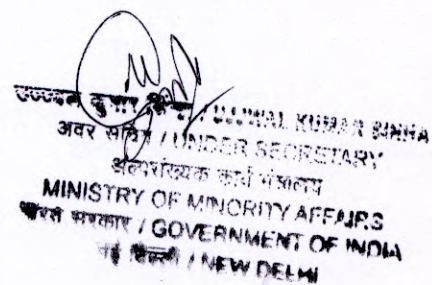 उज्ज्वल कुमार / UJJWAL KUMAR SINHA
अवर सचिव / UNDER SECRETARY
अल्पसंख्यक कार्य मंत्रालय
MINISTRY OF MINORITY AFFAIRS
भारत सरकार / GOVERNMENT OF INDIA
नई दिल्ली / NEW DELHI